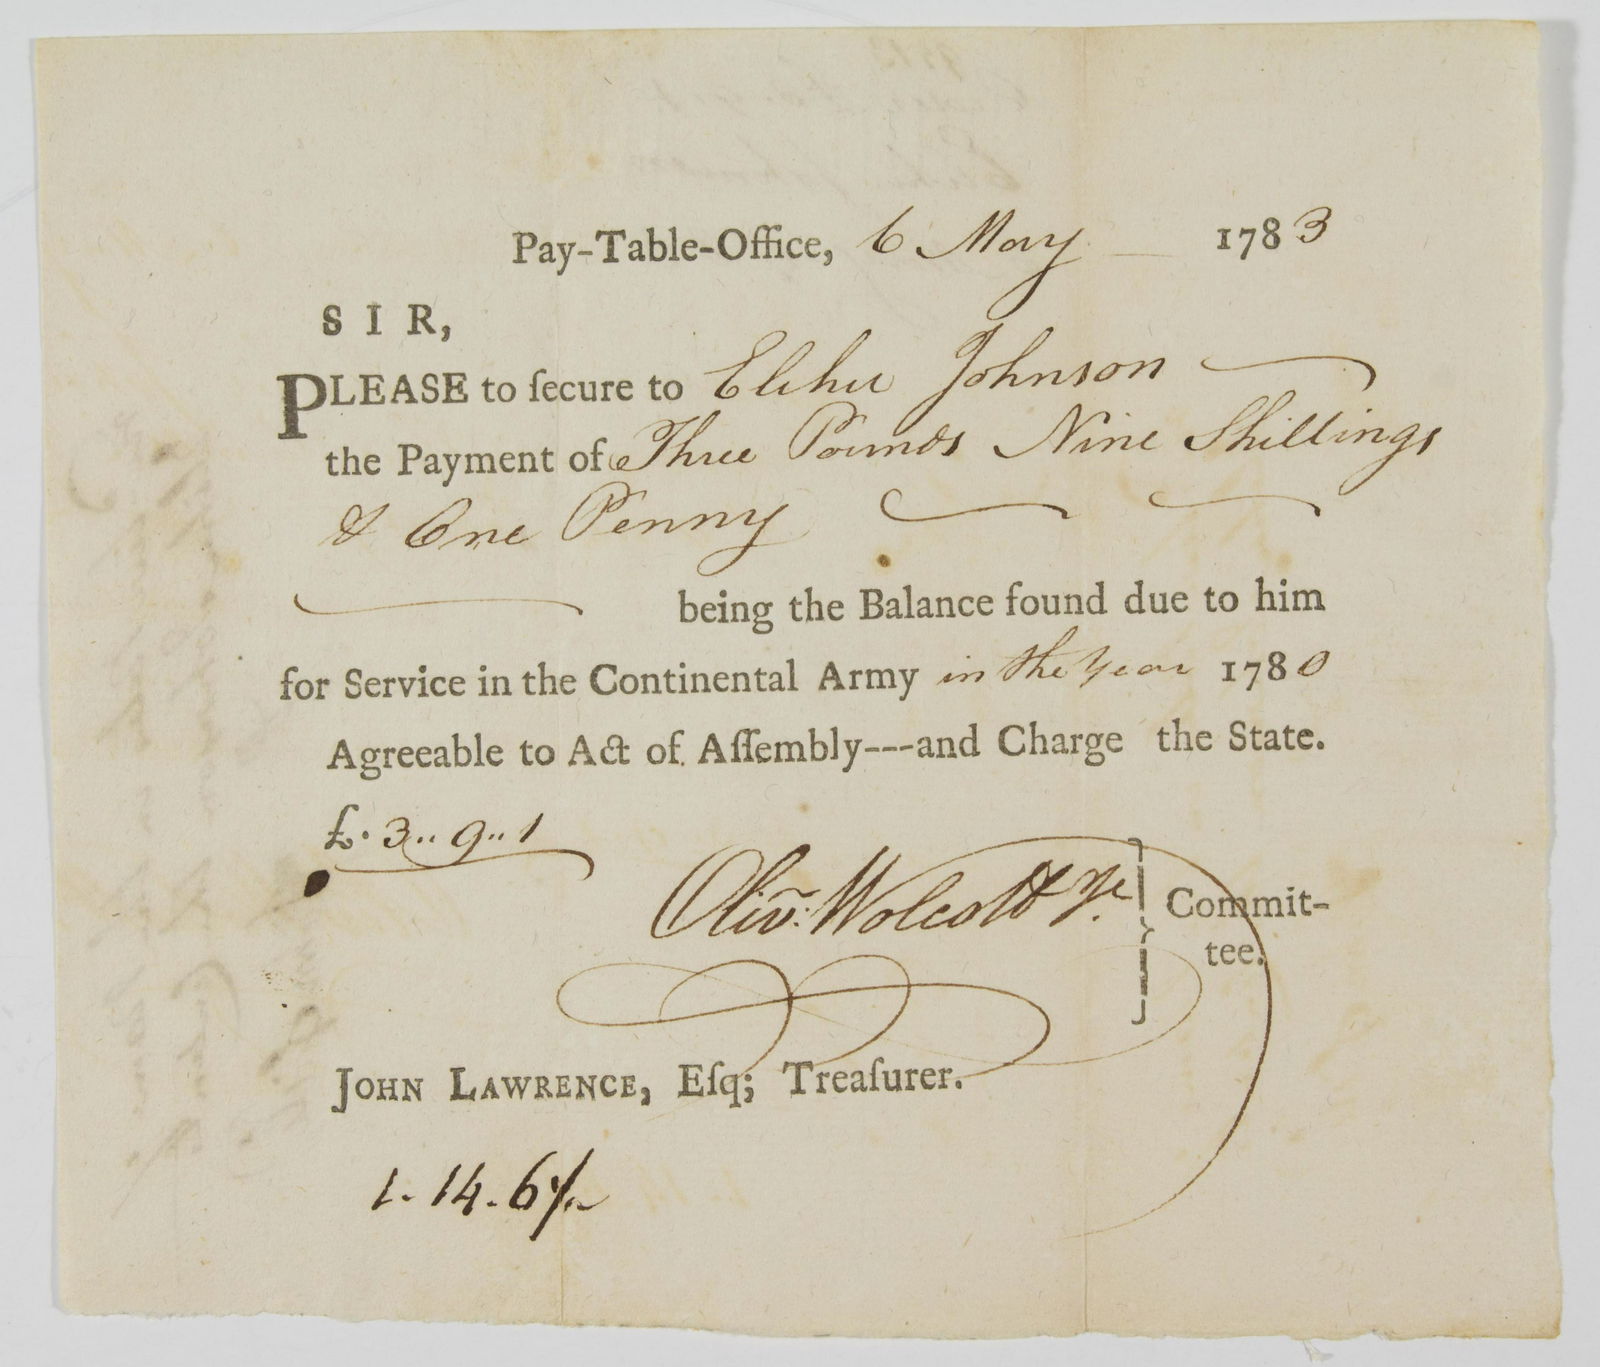 Pay-Table-Office, 6 May 1783
SIR,
PLEASE to ſecure to Elihu Johnson
the Payment of Three Pounds Nine Shillings
& One Penny
being the Balance found due to him
for Service in the Continental Army in the Year 1780
Agreeable to Act of Aſſembly---and Charge the State.
£. 3.. 9.. 1
Olivr: Wolcott Jr.
Commit-
tee.
JOHN LAWRENCE, Eſq; Treaſurer.
1. 14. 6